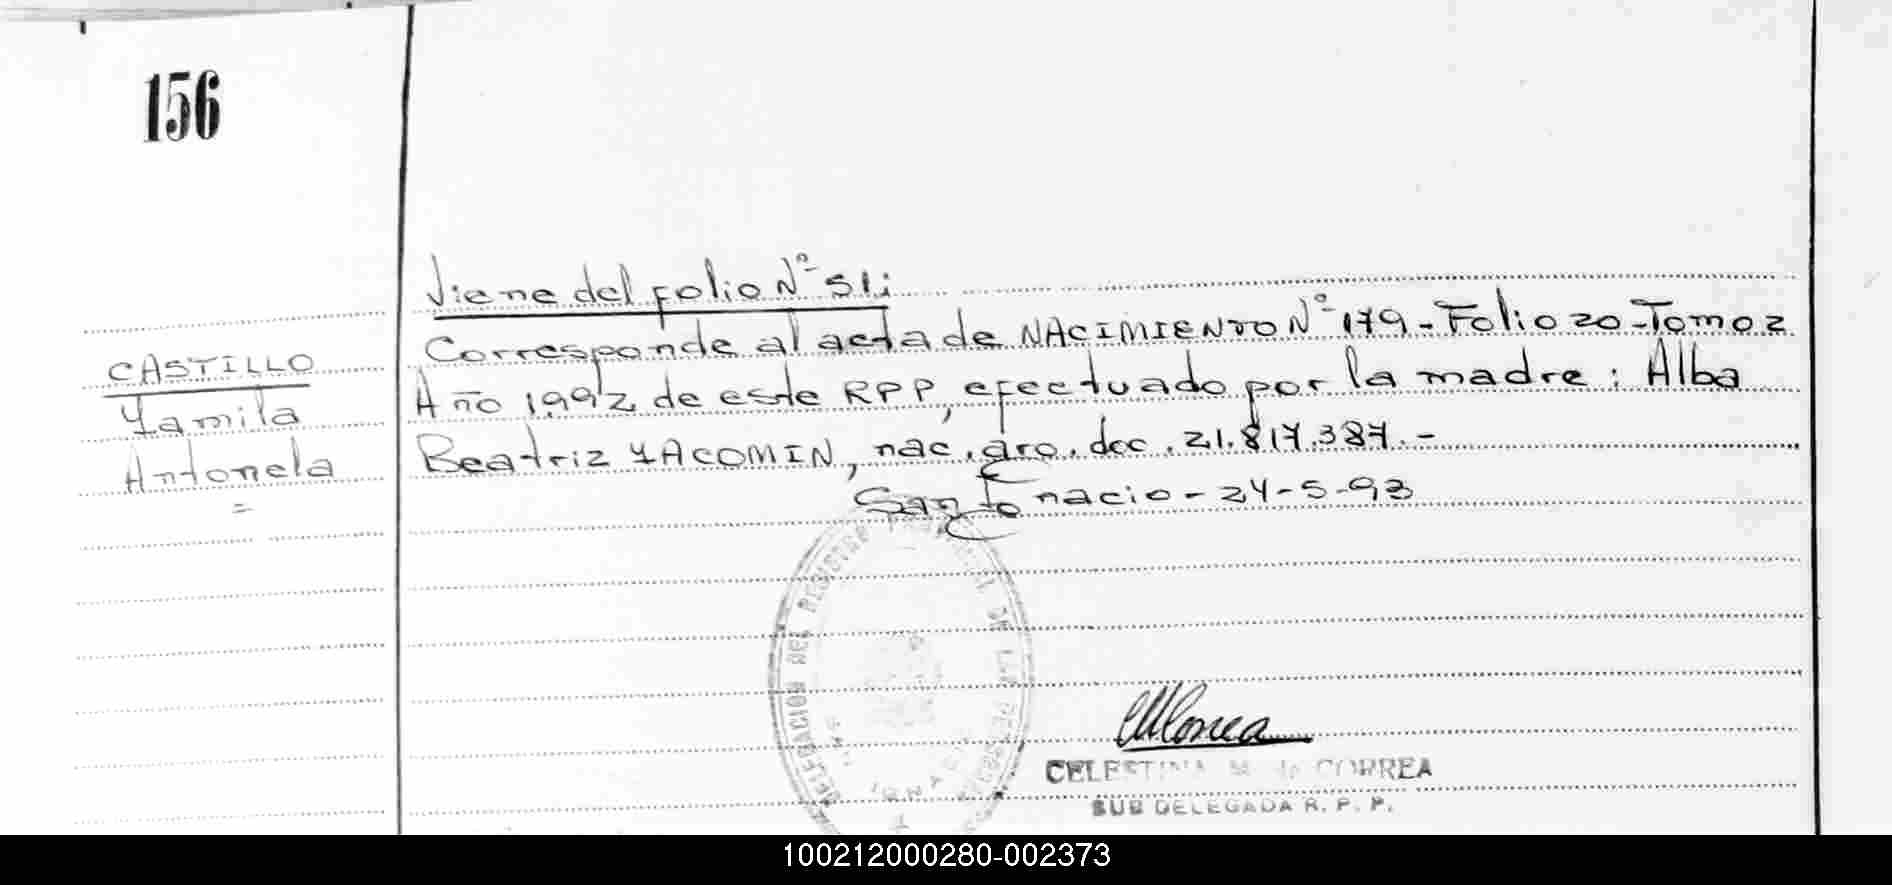 156
Viene del folio Nº 51:
CASTILLO
Yamila
Antonela
=
Corresponde al acta de NACIMIENTO Nº 179 - Folio 20 - Tomo 2
Año 1992 de este RPP, efectuado por la madre: Alba
Beatriz YACOMIN, nac. arg. doc. 21.817.387.-
San Ignacio - 24-5-93
DELEGACION DEL REGISTRO PROVINCIAL DE LAS PERSONAS
SAN IGNACIO
CELESTINA M. de CORREA
SUB DELEGADA R. P. P.
100212000280-002373